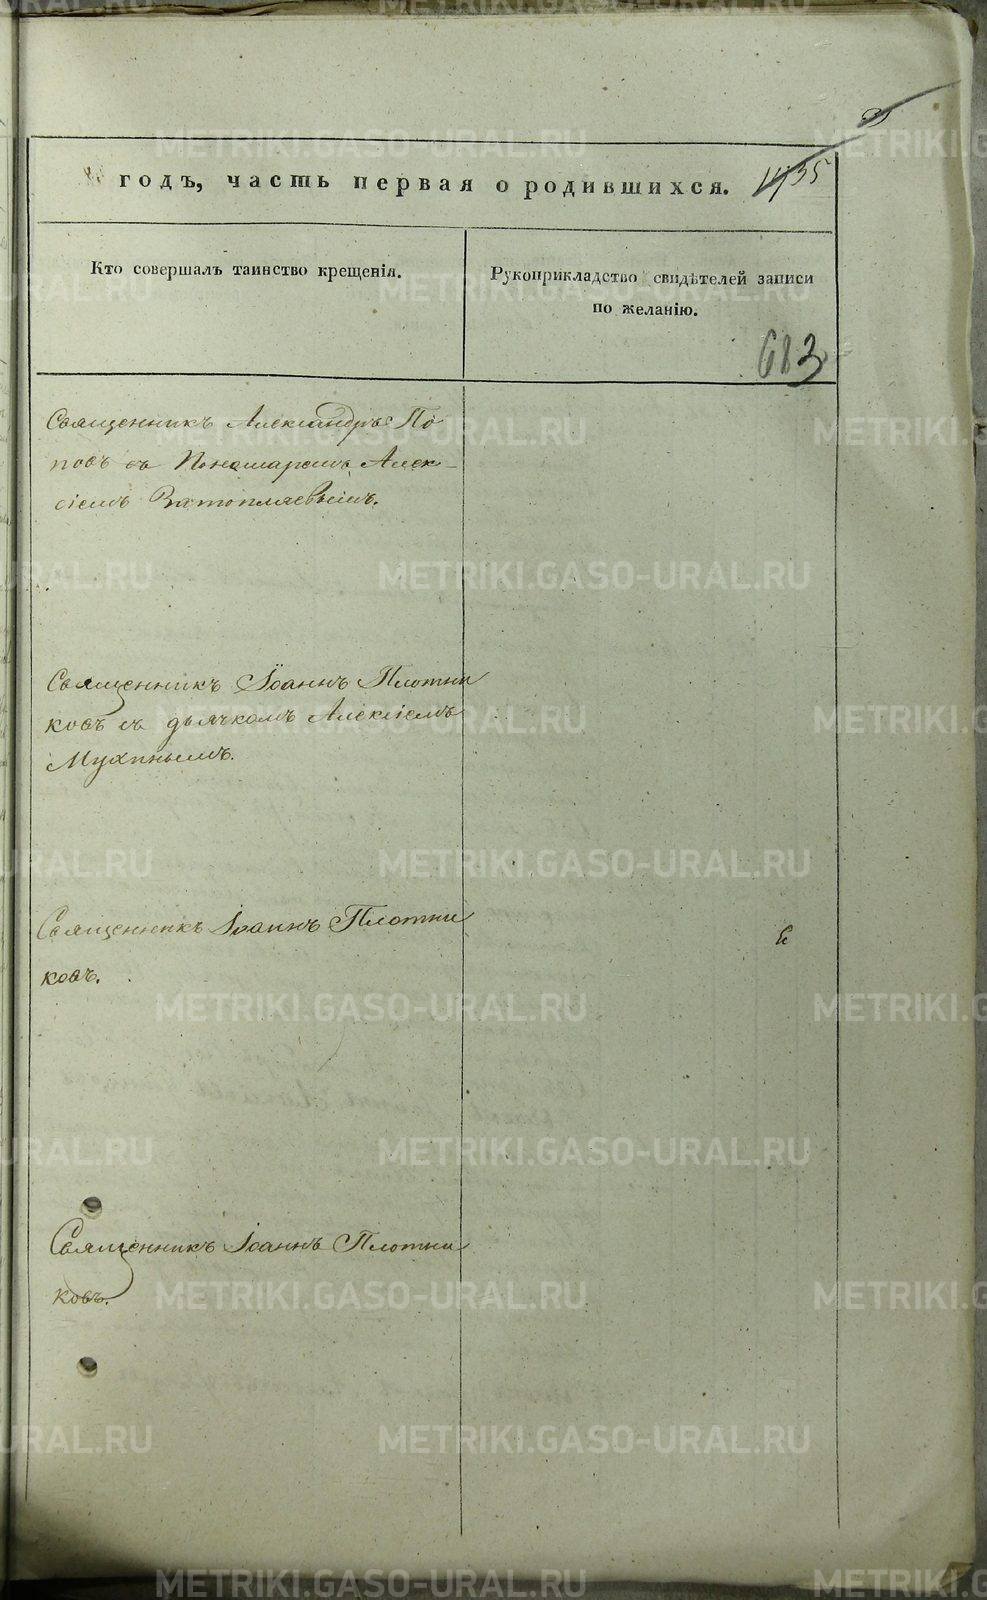 годъ, часть первая о родившихся.
Кто совершалъ таинство крещенія.
Рукоприкладство свидѣтелей записи
по желанію.
683
Священникъ Александръ По
повъ съ Пономаремъ Алек-
сіемъ Ватопляевымъ.
Священникъ Іоаннъ Плотни
ковъ съ дьячкомъ Алексіемъ
Мухинымъ.
Священникъ Іоаннъ Плотни
ковъ.
Священникъ Іоаннъ Плотни
ковъ.
METRIKI.GASO-URAL.RU